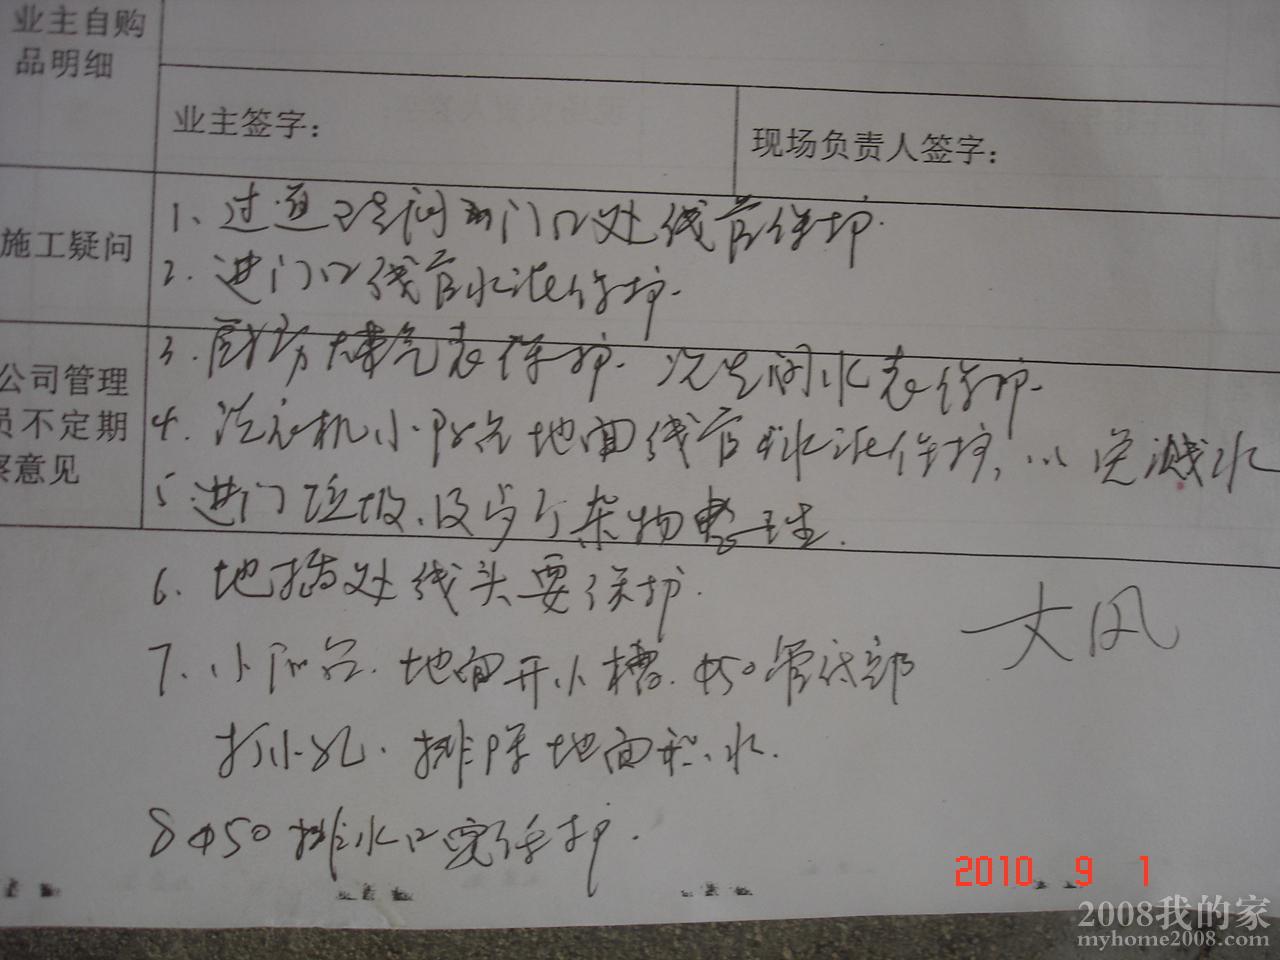 业主自购
品明细
业主签字：
现场负责人签字：
施工疑问
1、过道卫生间门口处线管保护.
2、进门口线管水泥保护.
公司管理
员不定期
察意见
3、厨房煤气表保护. 次卫间水表保护.
4、洗衣机小阳台地面线管水泥保护, 以免溅水
5 进门垃圾、及多余杂物整理.
6、地插处线头要保护.
7、小阳台. 地面开小槽. Φ50管底部
打小孔. 排除地面积水.
8 Φ50排水口要保护.
大风
2010 9 1
2008我的家
myhome2008.com